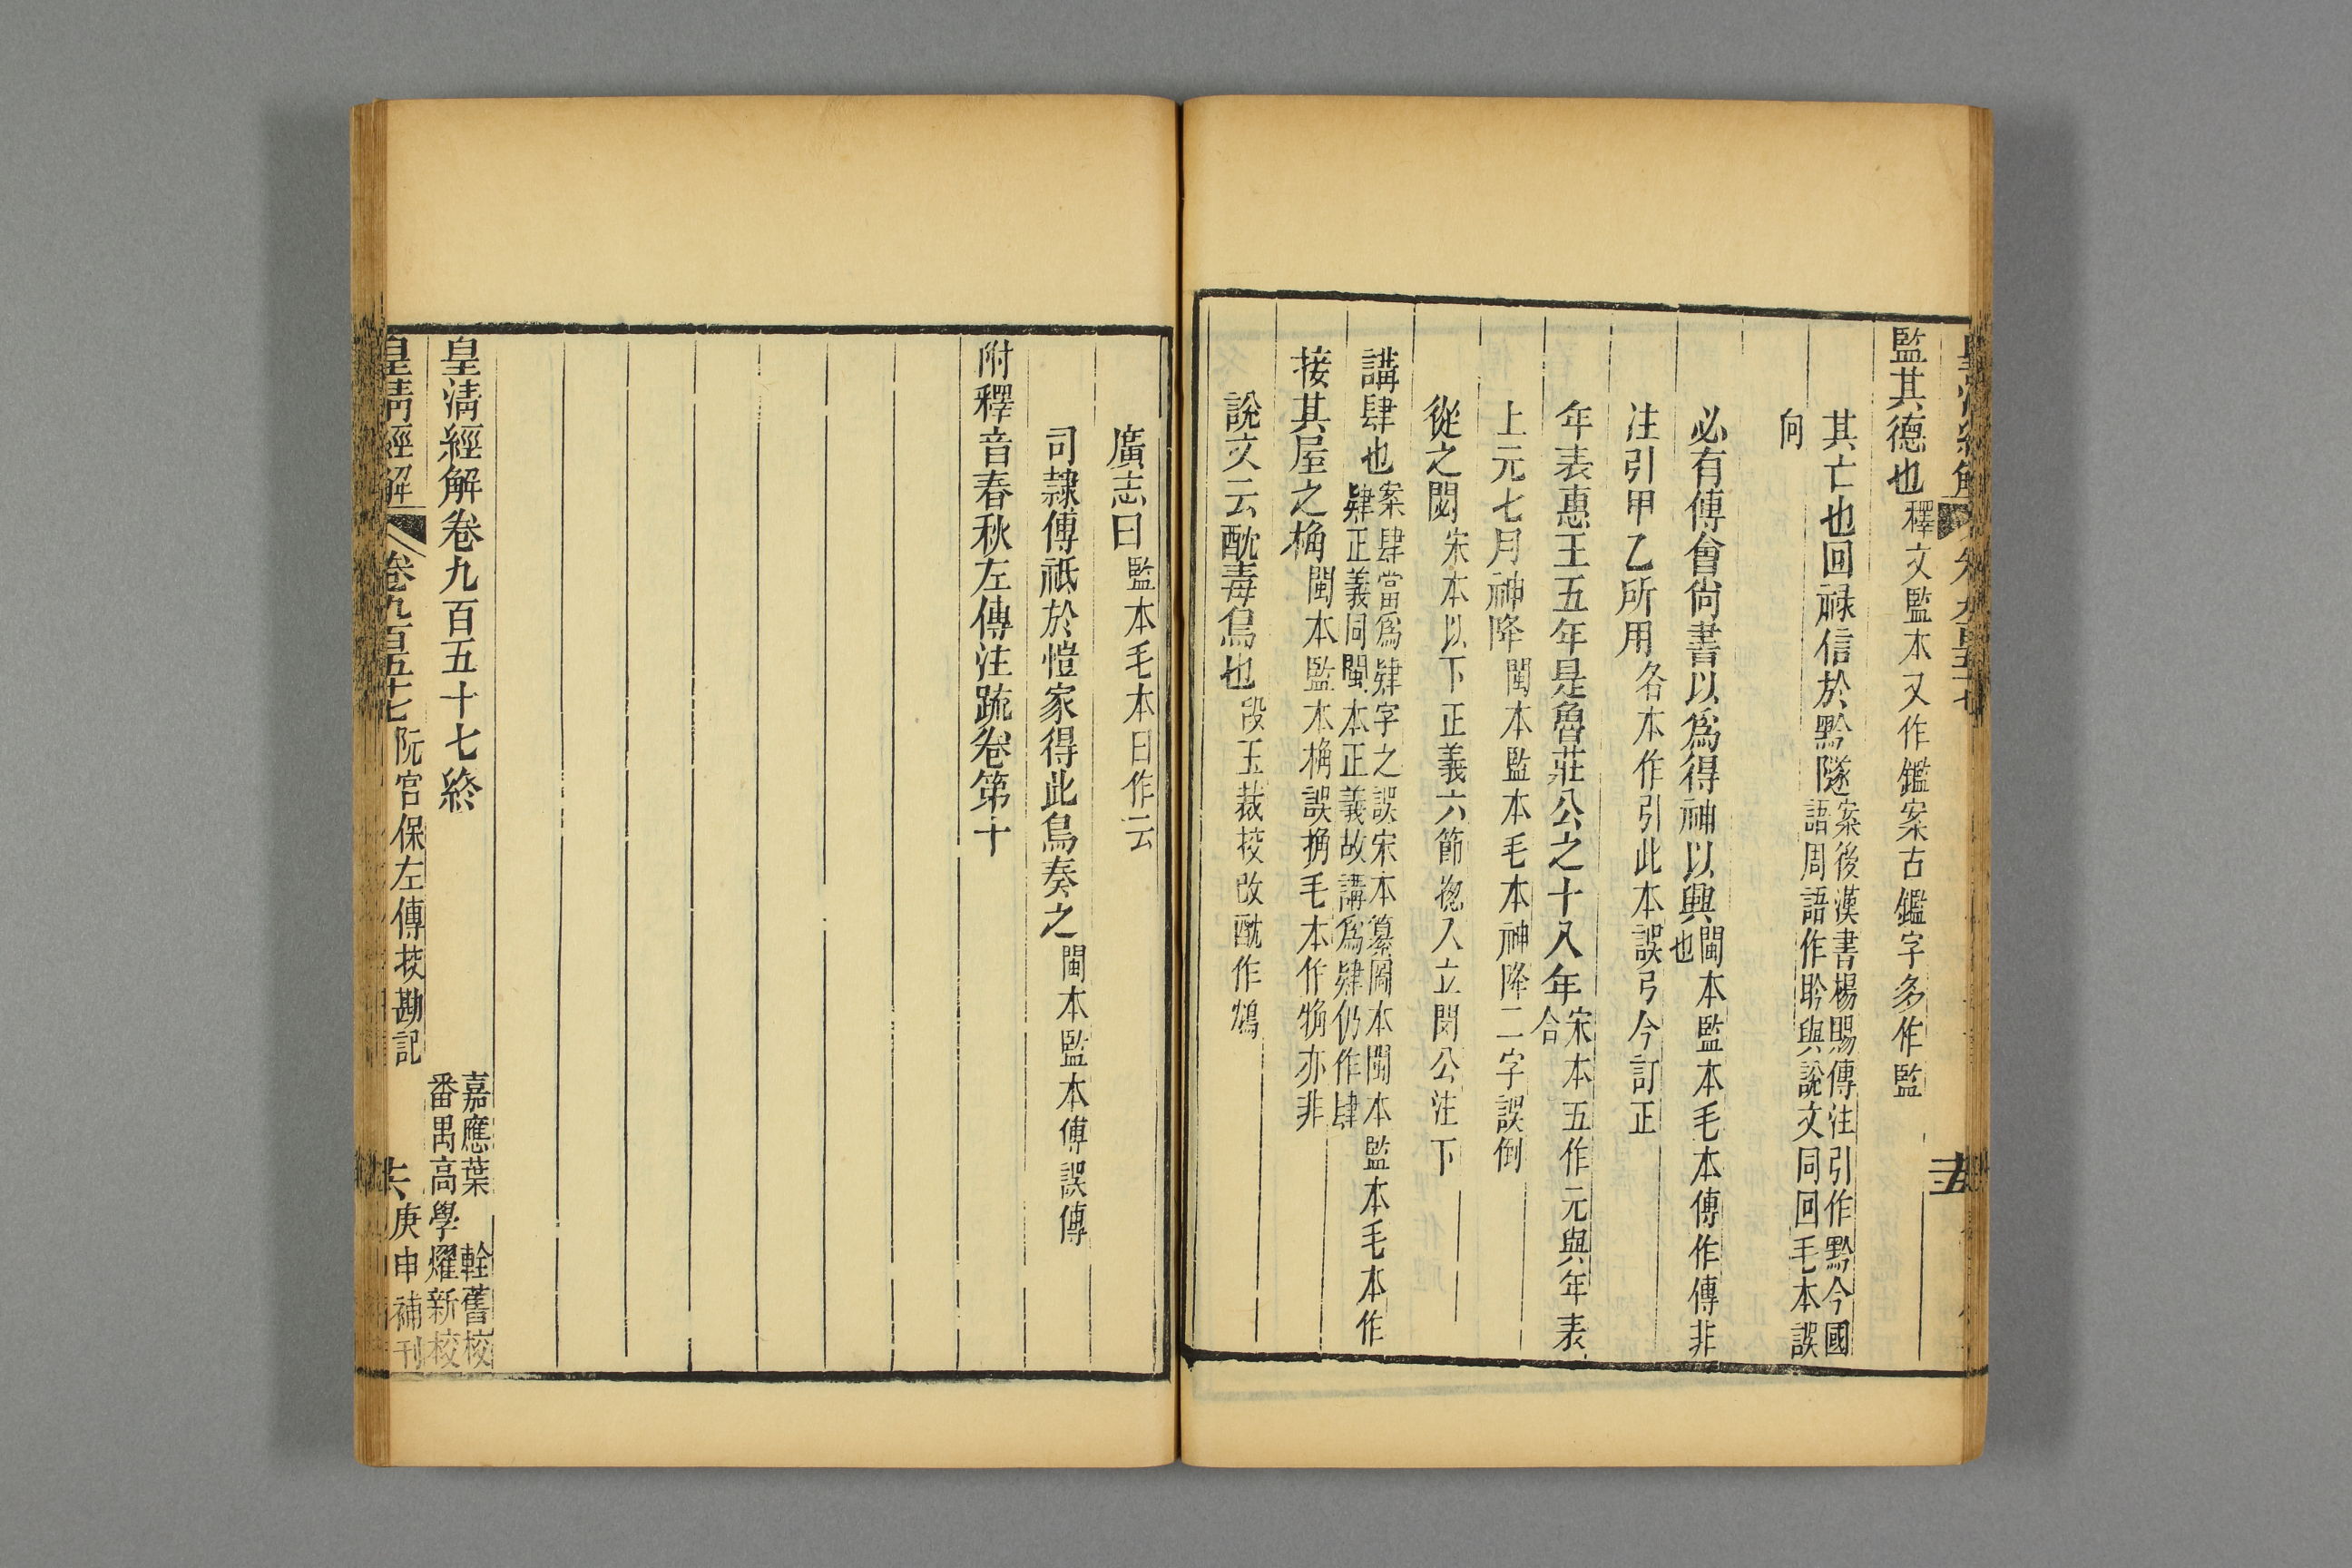 皇清經解 卷九百五十七
監其德也釋文監本又作鑑案古鑑字多作監
其亡也回祿信於黔隧案後漢書楊賜傳注引作黔今國
語周語作聆與說文同回毛本誤
向
必有傳會尙書以爲得神以興閩本監本毛本傳作傳非
也
注引甲乙所用各本作引此本誤弓今訂正
年表惠王五年是魯莊公之十八年宋本五作元與年表
合
上元七月神降閩本監本毛本神降二字誤倒
從之閟宋本以下正義六節揔入立閔公注下
講肆也案肆當爲肄字之誤宋本纂圖本閩本監本毛本作
肄正義同閩本正義故講爲肄仍作肆
接其屋之桷閩本監本桷誤捔毛本作犄亦非
說文云酖毒鳥也段玉裁校改酖作鴆
廣志曰監本毛本曰作云
司隸傅祇於愷家得此鳥奏之閩本監本傅誤傳
附釋音春秋左傳注疏卷第十
皇淸經解卷九百五十七終
嘉應葉 輇舊校
番禺高學燿新校
皇淸經解 卷九百五十七 阮宮保左傳挍勘記 六 庚申補刊